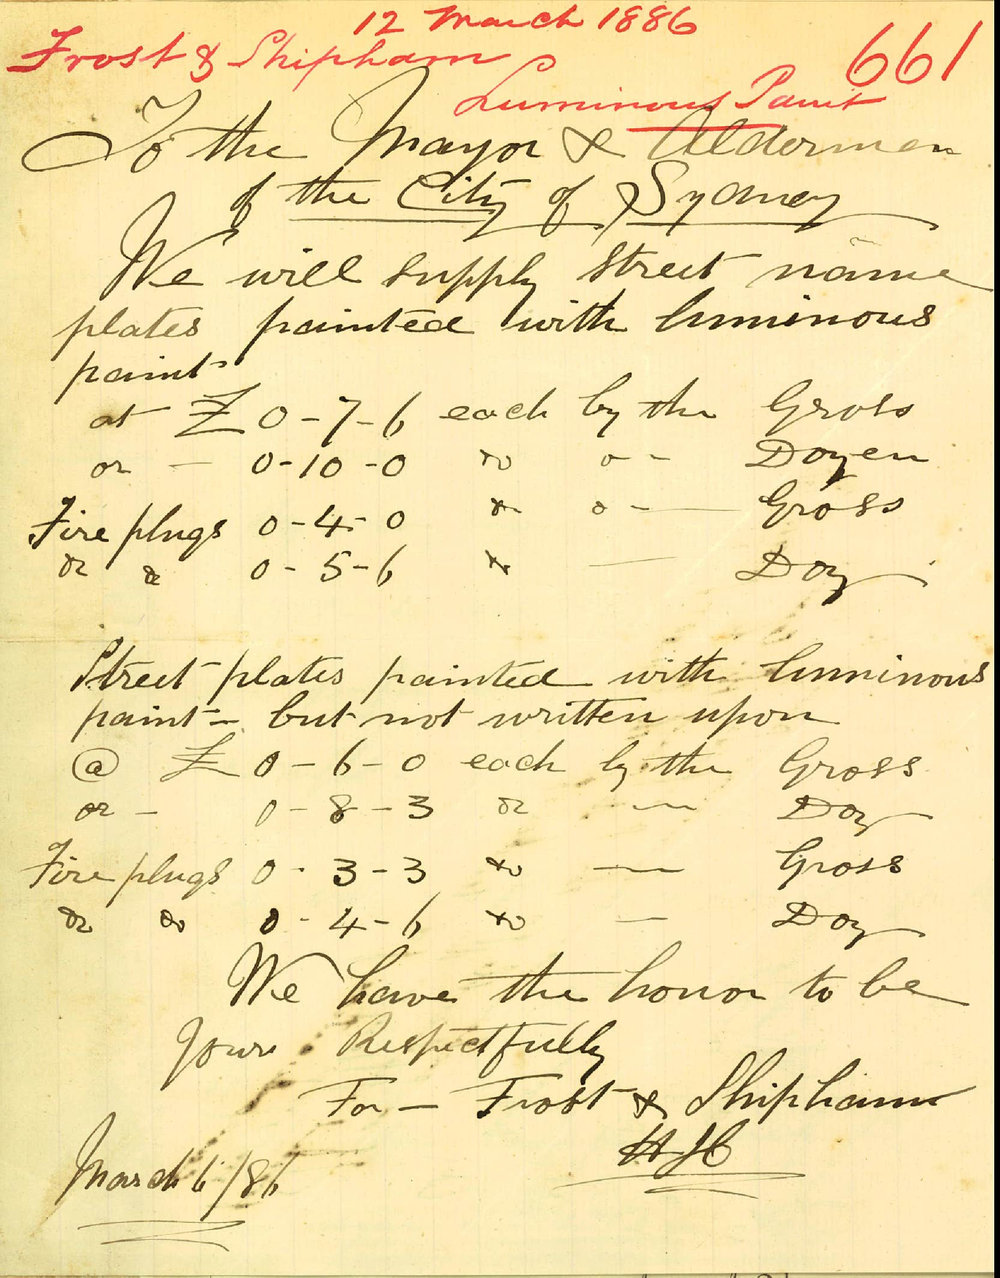 12 March 1886
661
Frost & Shipham
Luminous Paint
To the Mayor & Aldermen
of the City of Sydney
We will supply street name
plates painted with luminous
paint
at £ 0-7-6 each by the Gross
or - 0-10-0 do do - Dozen
Fire plugs 0-4-0 do do - Gross
do do 0-5-6 do - Doz
Street plates painted with luminous
paint - but not written upon
@ £ 0-6-0 each by the Gross
or - 0-8-3 do - Doz
Fire plugs 0-3-3 do - Gross
do do 0-4-6 do - Doz
We have the honor to be
Yours Respectfully
For - Frost & Shipham
March 6/86